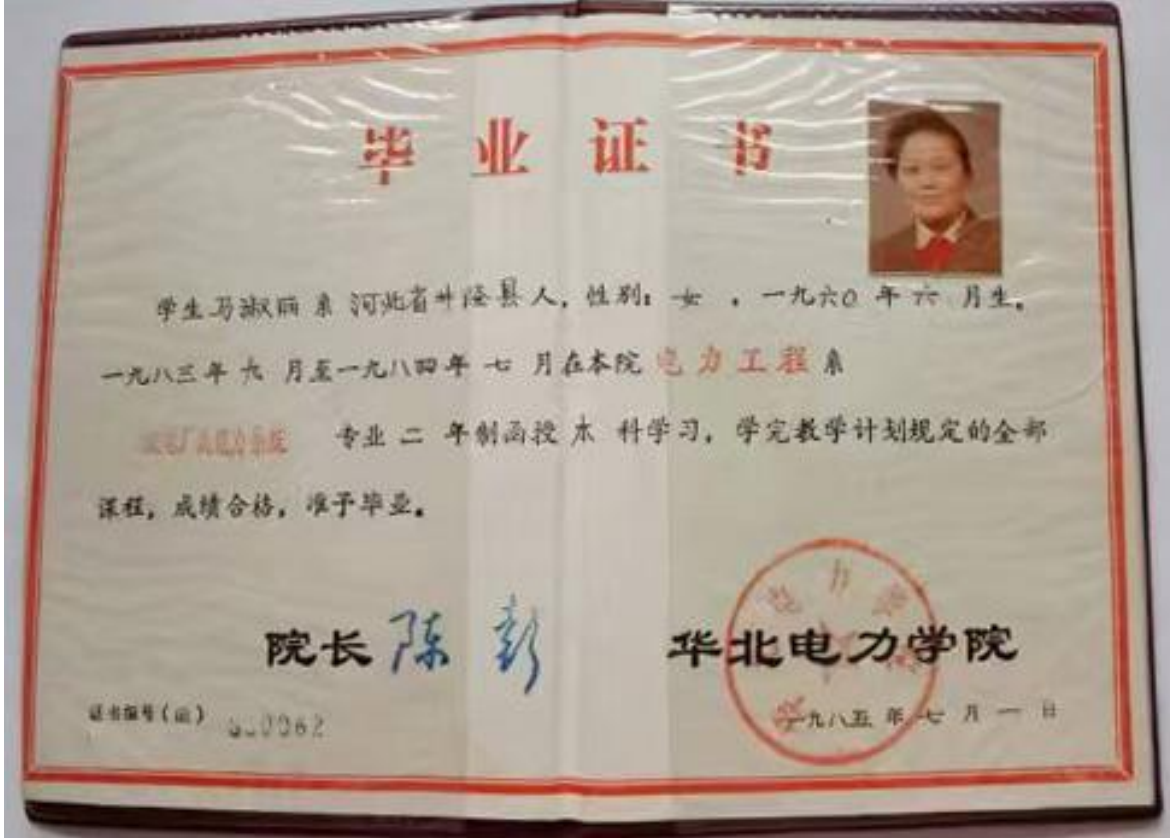 毕业证书
学生马淑丽系河北省井陉县人，性别：女，一九六〇年六月生。
一九八三年九月至一九八四年七月在本院电力工程系
专业二年制函授本科学习，学完教学计划规定的全部
课程，成绩合格，准予毕业。
院长陈彭
华北电力学院
证书编号（函）
一九八五年七月一日